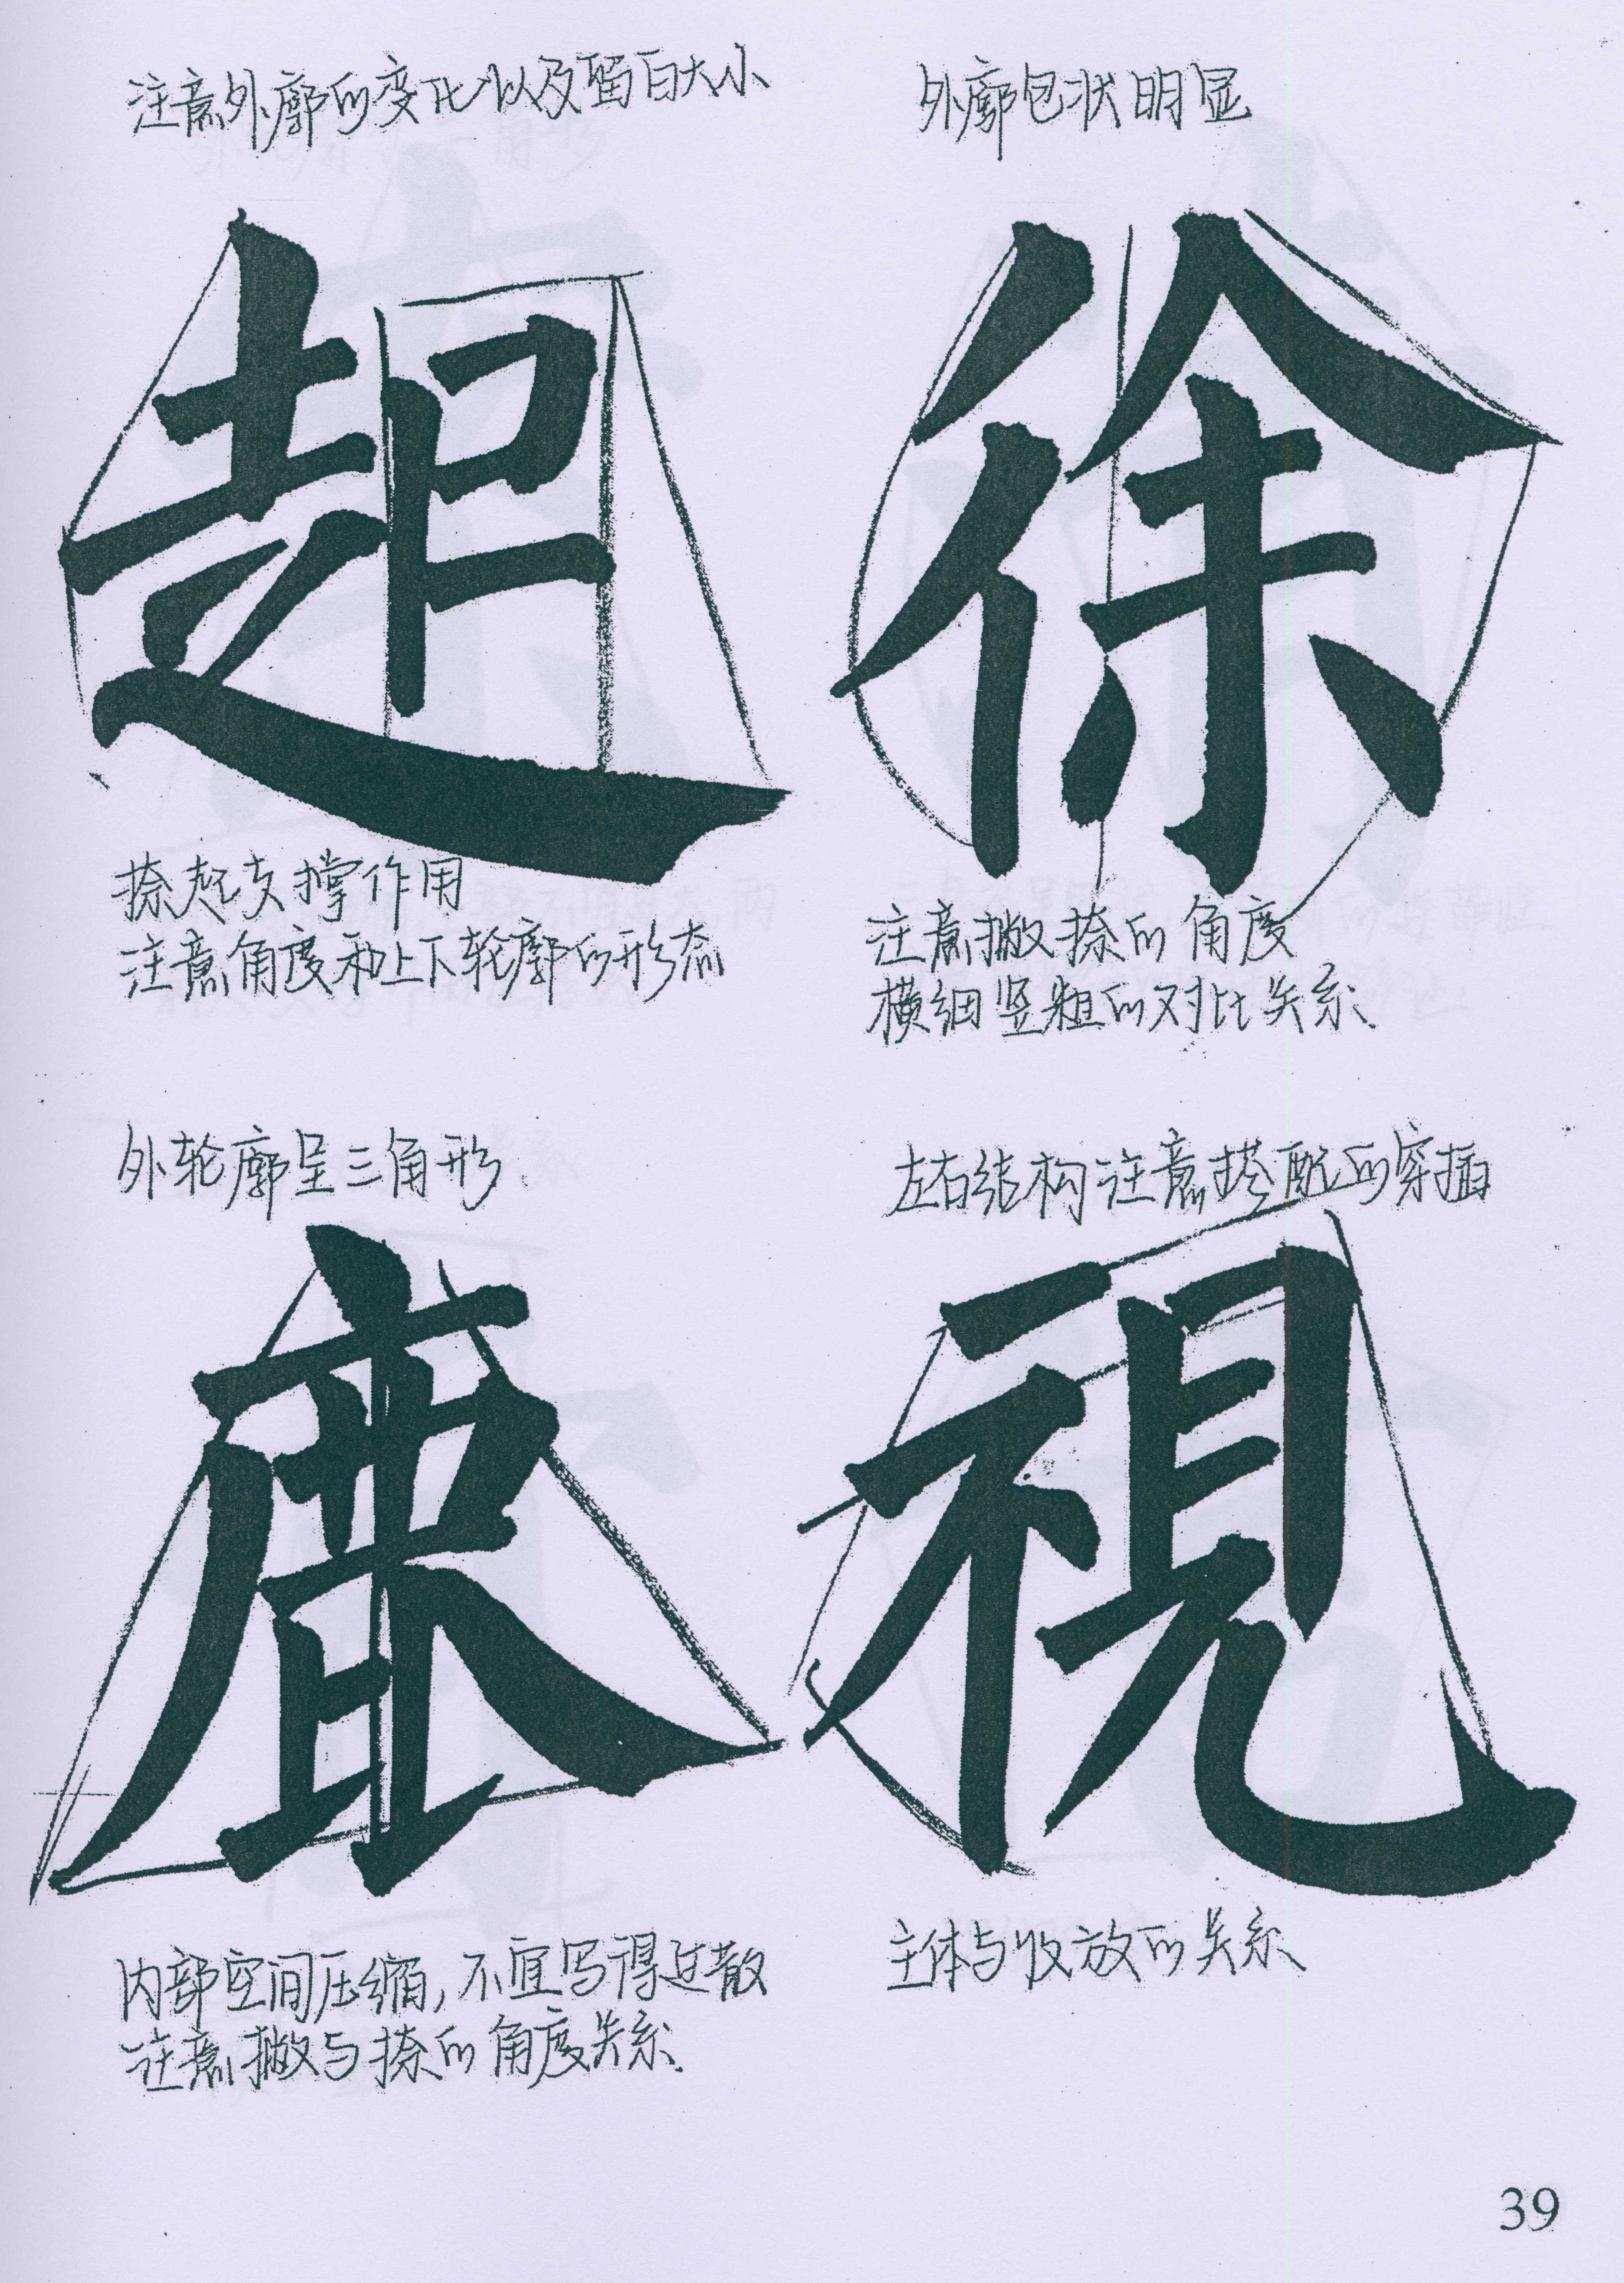 注意外廓的变化以及留白大小
起
捺起支撑作用
注意角度和上下轮廓的形态
外廓包状明显
徐
注意撇捺的角度
横细竖粗的对比关系.
外轮廓呈三角形.
鹿
内部空间压缩,不宜写得过散
注意撇与捺的角度关系.
左右结构注意搭配的穿插
視
主体与收放的关系
39